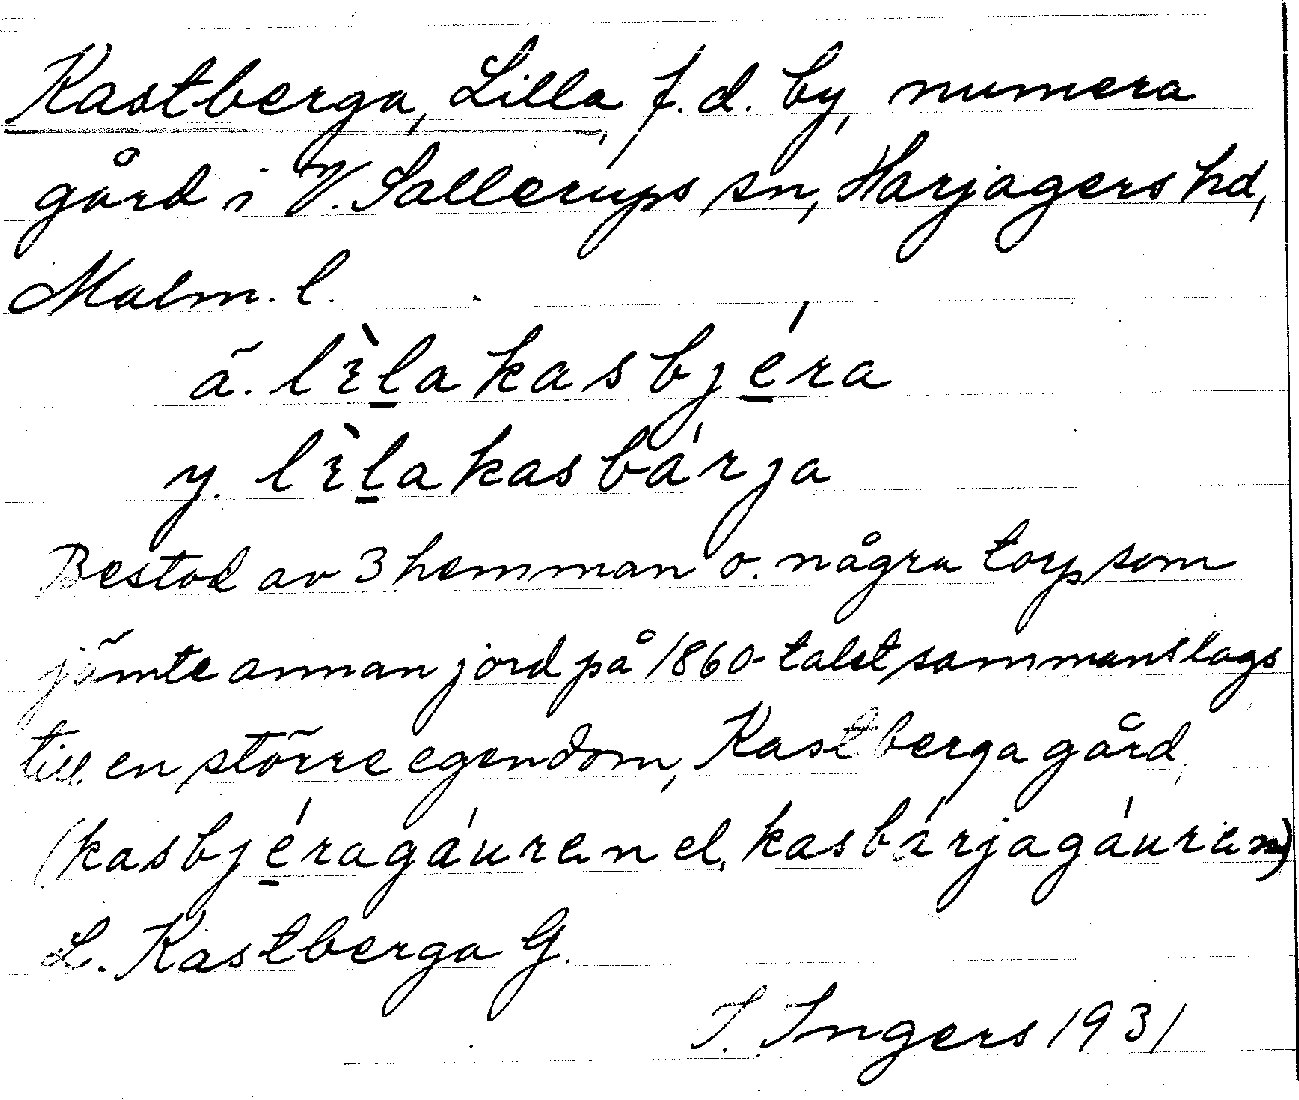 Kastberga, Lilla, f.d. by, numera
gård i V. Sallerups sn, Harjagers hd,
Malm. l.
ä. lìla kasbjéra
y. lìla kasbárja
Bestod av 3 hemman o. några torp som
jämte annan jord på 1860-talet sammanslogs
till en större egendom, Kastberga gård,
(kasbjéragáuren el. kasbárjagáuren)
L. Kastberga G.
I. Ingers 1931